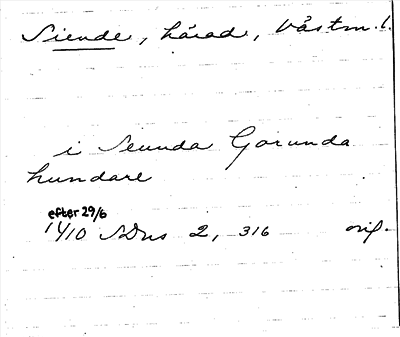 Siende, härad, Västm. l.
i Seunda Gorunda
hundare
efter 29/6
1410 SDns 2, 316 orig.